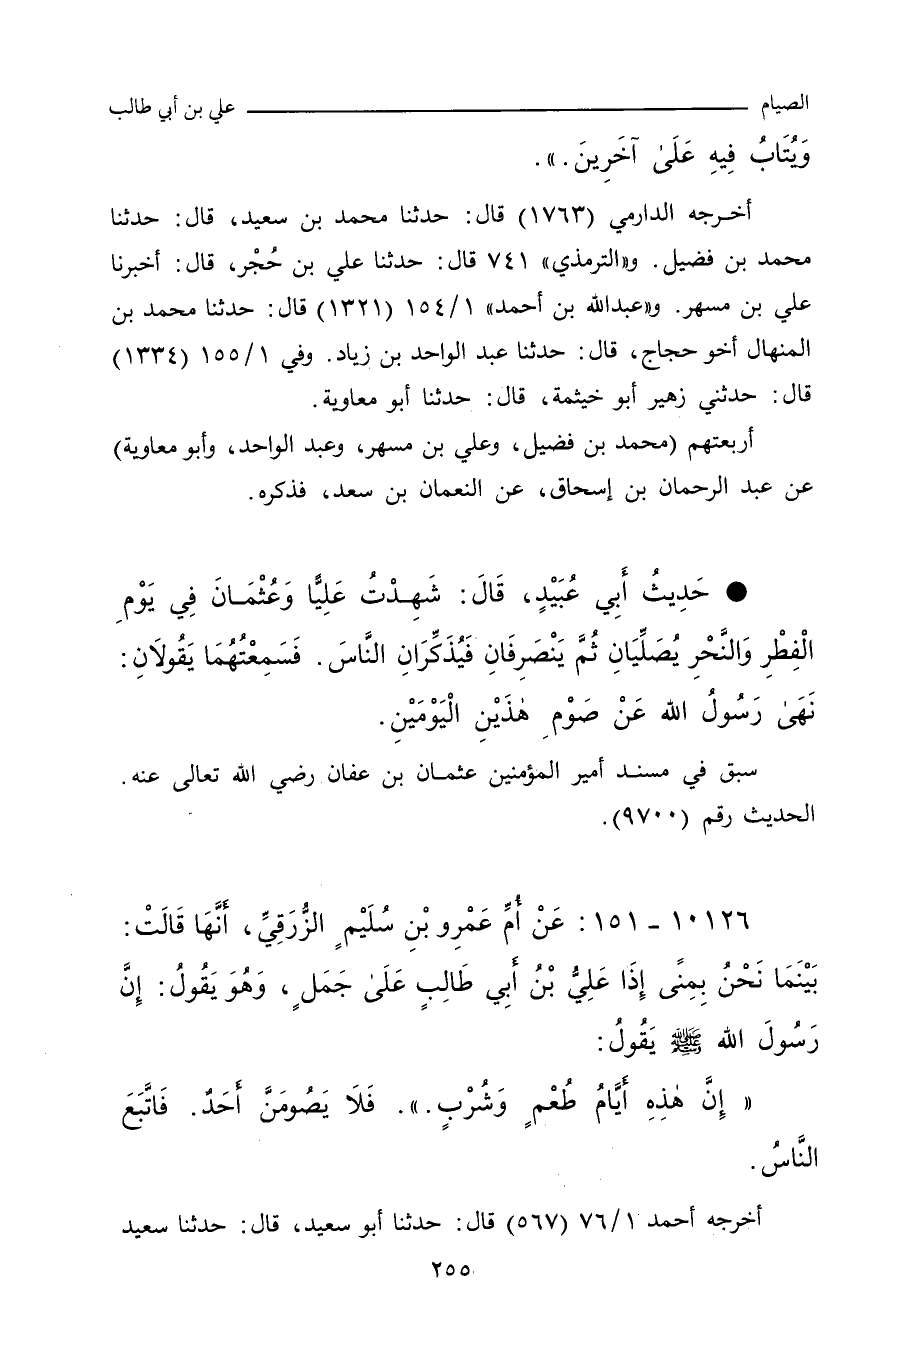 الصيام ــــــــــــــــ علي بن أبي طالب
وَيُتَابُ فِيهِ عَلَىٰ آخَرِينَ . » .
أخـرجه الدارمي (١٧٦٣) قال: حدثنا محمد بن سعيد، قال: حدثنا
محمد بن فضيل. و«الترمذي» ٧٤١ قال: حدثنا علي بن حُجْر، قال: أخبرنا
علي بن مسهر. و«عبدالله بن أحمد» ١/ ١٥٤ (١٣٢١) قال: حدثنا محمد بن
المنهال أخو حجاج، قال: حدثنا عبد الواحد بن زياد. وفي ١/ ١٥٥ (١٣٣٤)
قال: حدثني زهير أبو خيثمة، قال: حدثنا أبو معاوية.
أربعتهم (محمد بن فضيل، وعلي بن مسهر، وعبد الواحد، وأبو معاوية)
عن عبد الرحمان بن إسحاق، عن النعمان بن سعد، فذكره.
● حَدِيثُ أَبِي عُبَيْدٍ، قَالَ: شَهِـدْتُ عَلِيًّا وَعُثْمَـانَ فِي يَوْمِ
الْفِطْرِ وَالنَّحْرِ يُصَلِّيَانِ ثُمَّ يَنْصَرِفَانِ فَيُذَكِّرَانِ النَّاسَ. فَسَمِعْتُهُمَا يَقُولَانِ:
نَهَىٰ رَسُولُ الله عَنْ صَوْمِ هٰذَيْنِ الْيَوْمَيْنِ.
سبق في مسنـد أمير المؤمنين عثمـان بن عفان رضي الله تعالى عنه.
الحديث رقم (٩٧٠٠).
١٠١٢٦ - ١٥١: عَنْ أُمِّ عَمْرِو بْنِ سُلَيْمٍ الزُّرَقِيِّ، أَنَّهَا قَالَتْ:
بَيْنَمَا نَحْنُ بِمِنًى إِذَا عَلِيُّ بْنُ أَبِي طَالِبٍ عَلَىٰ جَمَلٍ، وَهُوَ يَقُولُ: إِنَّ
رَسُولَ الله ﷺ يَقُولُ:
« إِنَّ هٰذِهِ أَيَّامُ طُعْمٍ وَشُرْبٍ. ». فَلَا يَصُومَنَّ أَحَدٌ. فَاتَّبَعَ
النَّاسُ.
أخرجه أحمد ١/ ٧٦ (٥٦٧) قال: حدثنا أبو سعيد، قال: حدثنا سعيد
٢٥٥